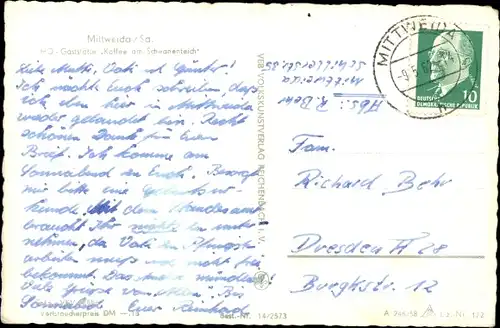 Mittweida/Sa.
HO-Gaststätte „Kaffee am Schwanenteich"
Liebe Mutti, Vati u. Günter!
Ich möchte Euch schreiben, daß
ich eben hier in Mittweida
wieder gelandet bin. Recht
schönen Dank für Euern
Brief. Ich komme am
Sonnabend zu Euch. Besorgt
mir bitte eine Geburtsur-
kunde. Mit dem Standesamt
braucht Ihr nichts zu unter-
nehmen, da Vati zu Pfingsten
arbeiten muß und nicht frei
bekommt. Das andere mündlich.
Viele Grüße von allen. Bis
Sonnabend Euer Reinhard
Verbraucherpreis DM —,15
Best.-Nr. 14/2573
VEB VOLKSKUNSTVERLAG REICHENBACH I. V.
Abs: R. Behr
Mittweida
Schillerstr. 35
MITTWEIDA
DEUTSCHE
DEMOKRATISCHE REPUBLIK
10
Fam.
Richard Behr
Dresden A 28
Burgkstr. 12